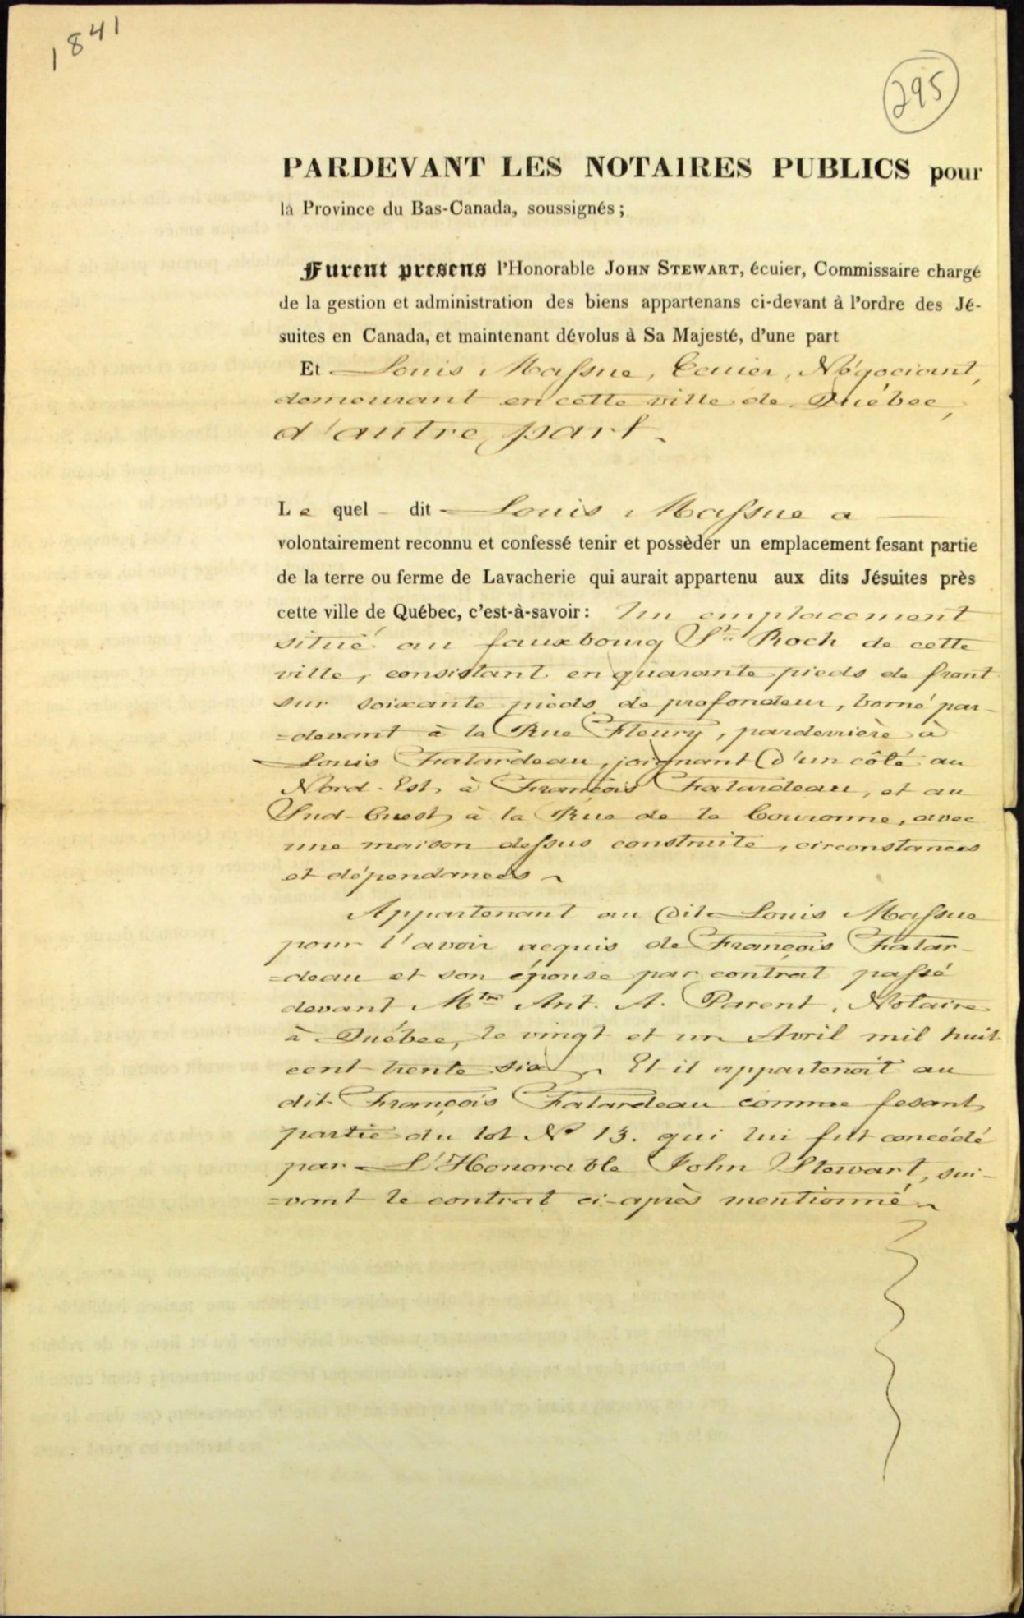 1841
295
PARDEVANT LES NOTAIRES PUBLICS pour
la Province du Bas-Canada, soussignés;
Furent presens l'Honorable JOHN STEWART, écuier, Commissaire chargé
de la gestion et administration des biens appartenans ci-devant à l'ordre des Jé-
suites en Canada, et maintenant dévolus à Sa Majesté, d'une part
Et Louis Massue, Ecuier, Négociant,
demeurant en cette ville de Québec,
d'autre part.
Le quel dit Louis Massue a
volontairement reconnu et confessé tenir et possèder un emplacement fesant partie
de la terre ou ferme de Lavacherie qui aurait appartenu aux dits Jésuites près
cette ville de Québec, c'est-à-savoir: Un emplacement
situé au fauxbourg St Roch de cette
ville, consistant en quarante pieds de front
sur soixante pieds de profondeur, borné par-
=devant à la Rue Fleury, parderrière à
Louis Falardeau, joignant d'un côté au
Nord-Est, à François Falardeau, et au
Sud-Ouest, à la Rue de la Couronne, avec
une maison dessus construite, circonstances
et dépendances
Appartenant au dit Louis Massue
pour l'avoir acquis de François Falar-
=deau et son épouse par contrat passé
devant Mtre Ant. A. Parent, Notaire
à Québec, le vingt et un Avril mil huit
cent trente six. Et il appartenoit au
dit François Falardeau comme fesant
partie du lot No 13. qui lui fut concédé
par L'Honorable John Stewart, sui-
=vant le contrat ci-après mentionné